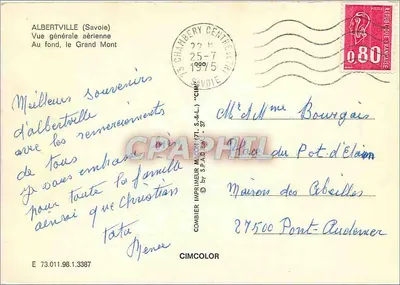 ALBERTVILLE (Savoie)
Vue générale aérienne
Au fond, le Grand Mont
73 CHAMBERY CENTRE
22 H
25-7
1975
SAVOIE
0,80
Meilleurs souvenirs
d'albertville
avec les remerciements
de tous
je vous embrasse ici
pour toute la famille
ainsi que Christian
tata
COMBIER IMPRIMEUR MACON (71, S.-&-L.) "CIM"
© by S.P.A.D.E.M.
M. & Mme Bourgais
Place du Pot d'Etain
Maison des Abeilles
27500 Pont-Audemer
CPAPHIL.COM
E 73.011.98.1.3387
CIMCOLOR